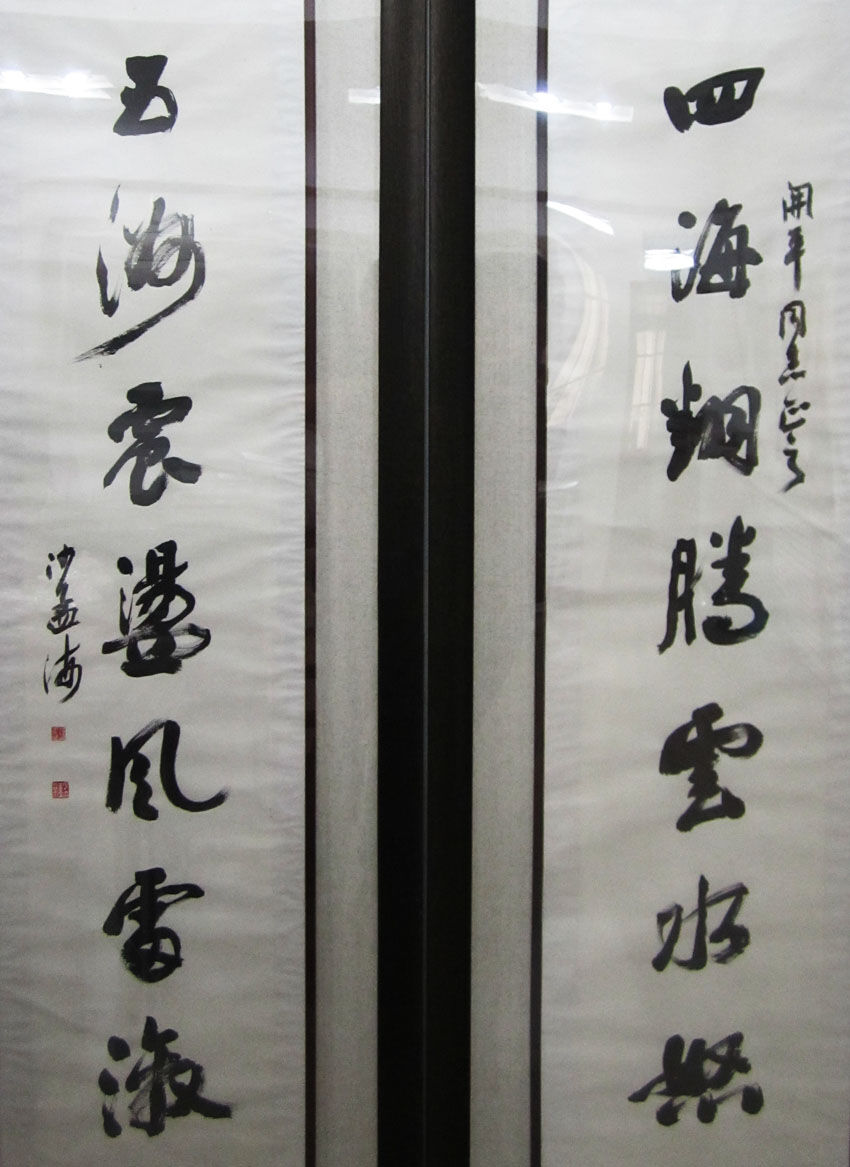 開平同志正之
四海翻騰雲水怒
五洲震盪風雷激
沙孟海